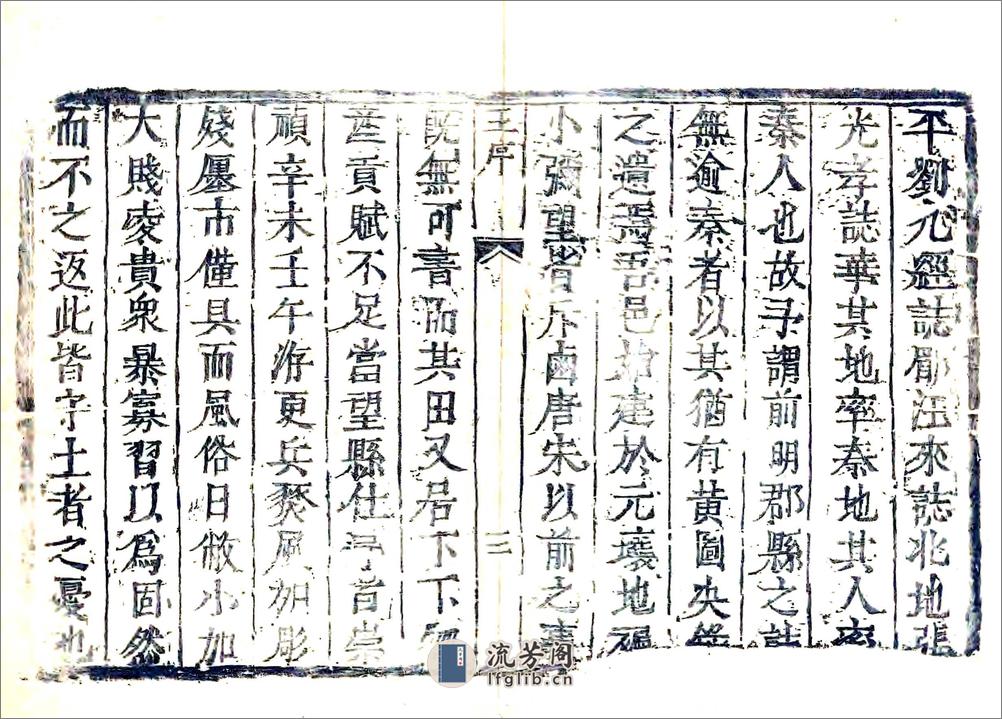 平劉九經誌郿汪來誌北地張
光孝誌華其地率秦地其人率
秦人也故予謂前明郡縣之誌
無逾秦者以其猶有黃圖決錄
之遺焉吾邑始建於元壤地褊
小彌望皆斥鹵唐宋以前之事
王序
三
既無可書而其田又居下下物
產貢賦不足當望縣仕
崇
禎辛未壬午洊更兵燹風加彫
殘廛市僅具而風俗日敝小加
大賤凌貴眾暴寡習以為固然
而不之返此皆守土者之憂也
流芳阁
lfglib.cn